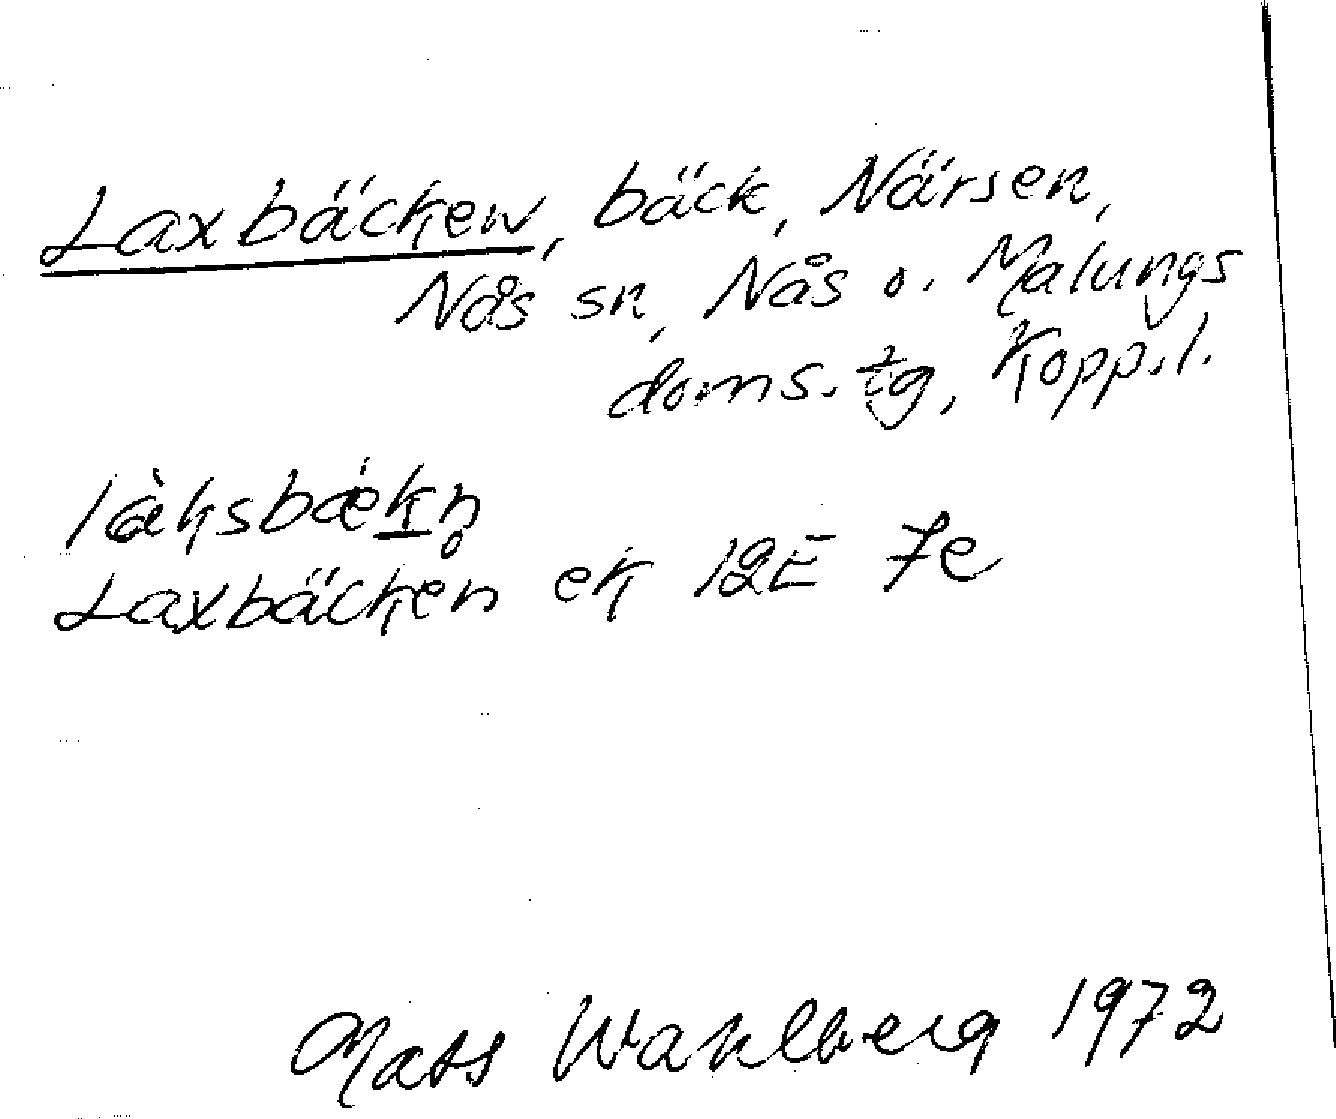 Laxbäcken, bäck, Närsen,
Nås sn, Nås o. Malungs
doms. tg, Kopp. l.
làksbækn̥
Laxbäcken ek 12E 7e
Mats Wahlberg 1972